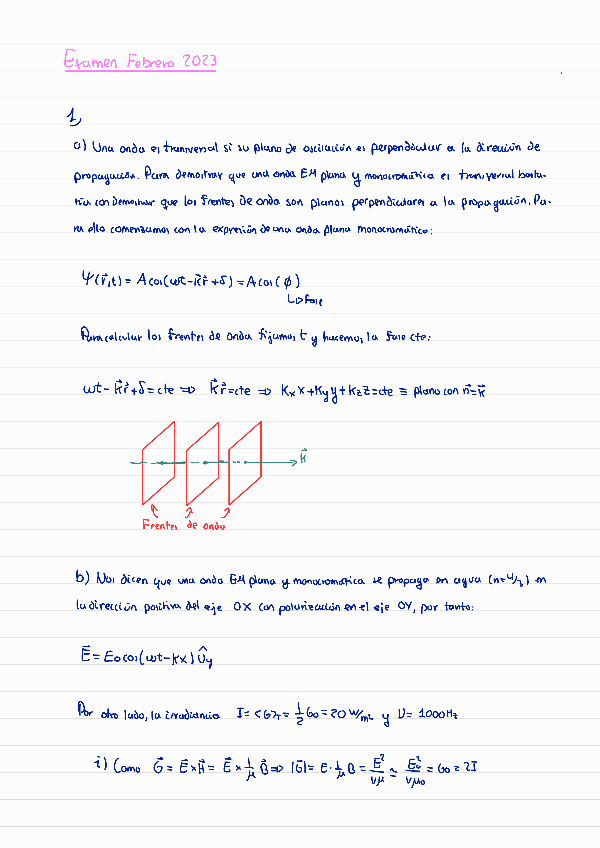 Examen Febrero 2023
1)
a) Una onda es transversal si su plano de oscilación es perpendicular a la dirección de
propagación. Para demostrar que una onda EM plana y monocromática es transversal basta-
ría con demostrar que los frentes de onda son planos perpendiculares a la propagación. Pa-
ra ello comenzamos con la expresión de una onda plana monocromática:
Ψ(r⃗,t) = A cos(ωt - k⃗r⃗ + δ) = A cos(ϕ)
↳ Fase
Para calcular los frentes de onda fijamos t y hacemos la fase cte:
ωt - k⃗r⃗ + δ = cte ⇒ k⃗r⃗ = cte ⇒ Kx x + Ky y + Kz z = cte ≡ plano con n⃗ = k⃗
k⃗
Frentes de onda
b) Nos dicen que una onda EM plana y monocromática se propaga en agua (n=4/3) en
la dirección positiva del eje OX con polarización en el eje OY, por tanto:
E⃗ = E₀ cos(ωt - kx) û_y
Por otro lado, la irradiancia I = <G> = 1/2 G₀ = 20 W/m² y ν = 1000 Hz
i) Como G⃗ = E⃗ × H⃗ = E⃗ × 1/μ B⃗ ⇒ |G⃗| = E · 1/μ B = E²/vμ ≃ E₀²/vμ₀ = G₀ = 2I